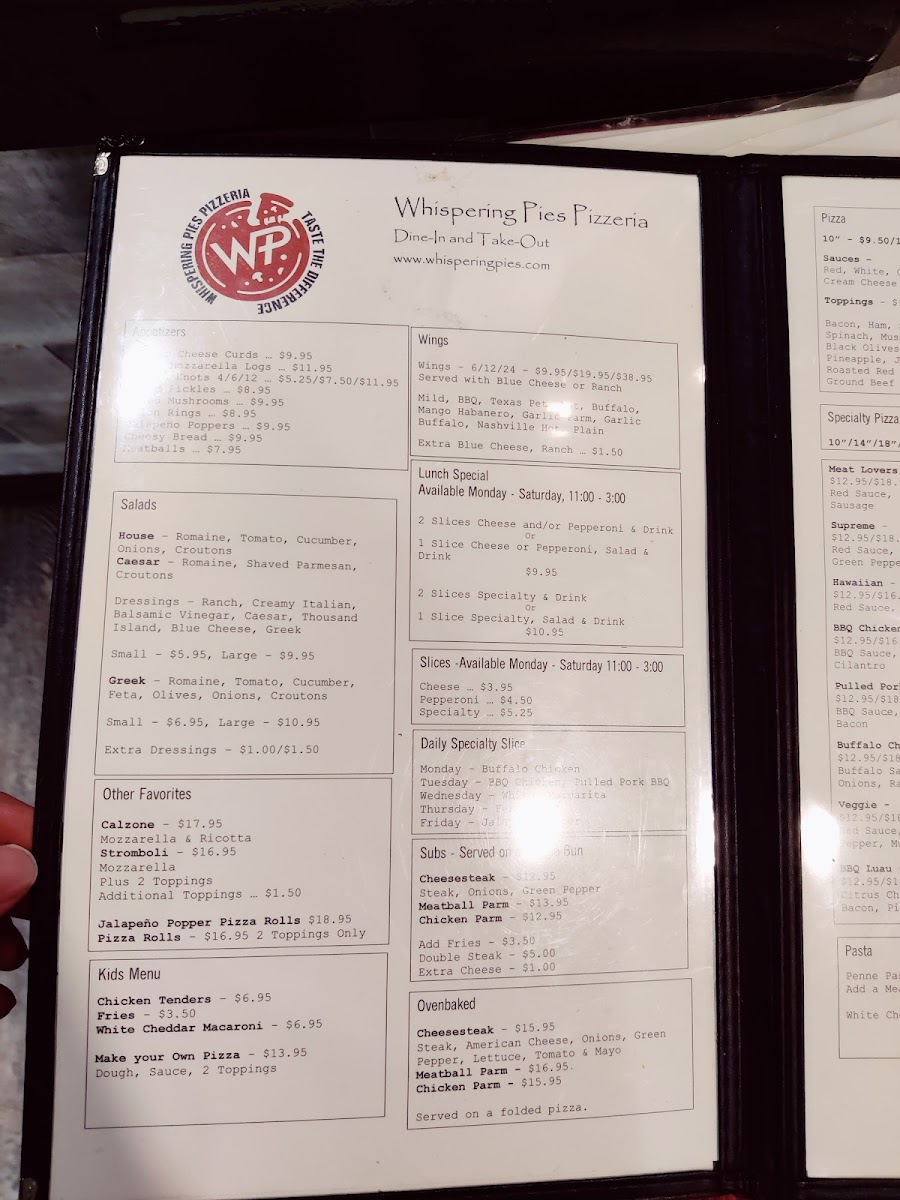 WHISPERING PIES PIZZERIA
TASTE THE DIFFERENCE
WP
Whispering Pies Pizzeria
Dine-In and Take-Out
www.whisperingpies.com
Appetizers
Cheese Curds … $9.95
Mozzarella Logs … $11.95
Knots 4/6/12 … $5.25/$7.50/$11.95
Pickles … $8.95
Mushrooms … $9.95
Rings … $8.95
Poppers … $9.95
Cheesy Bread … $9.95
Meatballs … $7.95
Salads
House - Romaine, Tomato, Cucumber,
Onions, Croutons
Caesar - Romaine, Shaved Parmesan,
Croutons
Dressings - Ranch, Creamy Italian,
Balsamic Vinegar, Caesar, Thousand
Island, Blue Cheese, Greek
Small - $5.95, Large - $9.95
Greek - Romaine, Tomato, Cucumber,
Feta, Olives, Onions, Croutons
Small - $6.95, Large - $10.95
Extra Dressings - $1.00/$1.50
Other Favorites
Calzone - $17.95
Mozzarella & Ricotta
Stromboli - $16.95
Mozzarella
Plus 2 Toppings
Additional Toppings … $1.50
Jalapeño Popper Pizza Rolls $18.95
Pizza Rolls - $16.95 2 Toppings Only
Kids Menu
Chicken Tenders - $6.95
Fries - $3.50
White Cheddar Macaroni - $6.95
Make your Own Pizza - $13.95
Dough, Sauce, 2 Toppings
Wings
Wings - 6/12/24 - $9.95/$19.95/$38.95
Served with Blue Cheese or Ranch
Mild, BBQ, Texas Buffalo,
Mango Habanero, Garlic Parm, Garlic
Buffalo, Nashville Hot, Plain
Extra Blue Cheese, Ranch … $1.50
Lunch Special
Available Monday - Saturday, 11:00 - 3:00
2 Slices Cheese and/or Pepperoni & Drink
Or
1 Slice Cheese or Pepperoni, Salad &
Drink
$9.95
2 Slices Specialty & Drink
Or
1 Slice Specialty, Salad & Drink
$10.95
Slices -Available Monday - Saturday 11:00 - 3:00
Cheese … $3.95
Pepperoni … $4.50
Specialty … $5.25
Daily Specialty Slice
Monday - Buffalo Chicken
Tuesday - BBQ Chicken, Pulled Pork BBQ
Wednesday - Margarita
Thursday -
Friday -
Subs - Served on Bun
Cheesesteak -
Steak, Onions, Green Pepper
Meatball Parm - $13.95
Chicken Parm - $12.95
Add Fries - $3.50
Double Steak - $5.00
Extra Cheese - $1.00
Ovenbaked
Cheesesteak - $15.95
Steak, American Cheese, Onions, Green
Pepper, Lettuce, Tomato & Mayo
Meatball Parm - $16.95
Chicken Parm - $15.95
Served on a folded pizza.
Pizza
10" - $9.50/1
Sauces -
Red, White,
Cream Cheese
Toppings - $
Bacon, Ham,
Spinach, Mus
Black Olives
Pineapple, J
Roasted Red
Ground Beef
Specialty Pizza
10"/14"/18"
Meat Lovers
$12.95/$18.
Red Sauce,
Sausage
Supreme -
$12.95/$18.
Red Sauce,
Green Peppe
Hawaiian -
$12.95/$16.
Red Sauce,
BBQ Chicken
$12.95/$16
BBQ Sauce,
Cilantro
Pulled Por
$12.95/$18
BBQ Sauce,
Bacon
Buffalo Ch
$12.95/$18
Buffalo Sa
Onions, Ra
Veggie -
$12.95/$18
Red Sauce,
Pepper, Mu
BBQ Luau
$12.95/$1
Citrus Ch
Bacon, Pi
Pasta
Penne Pas
Add a Mea
White Ch